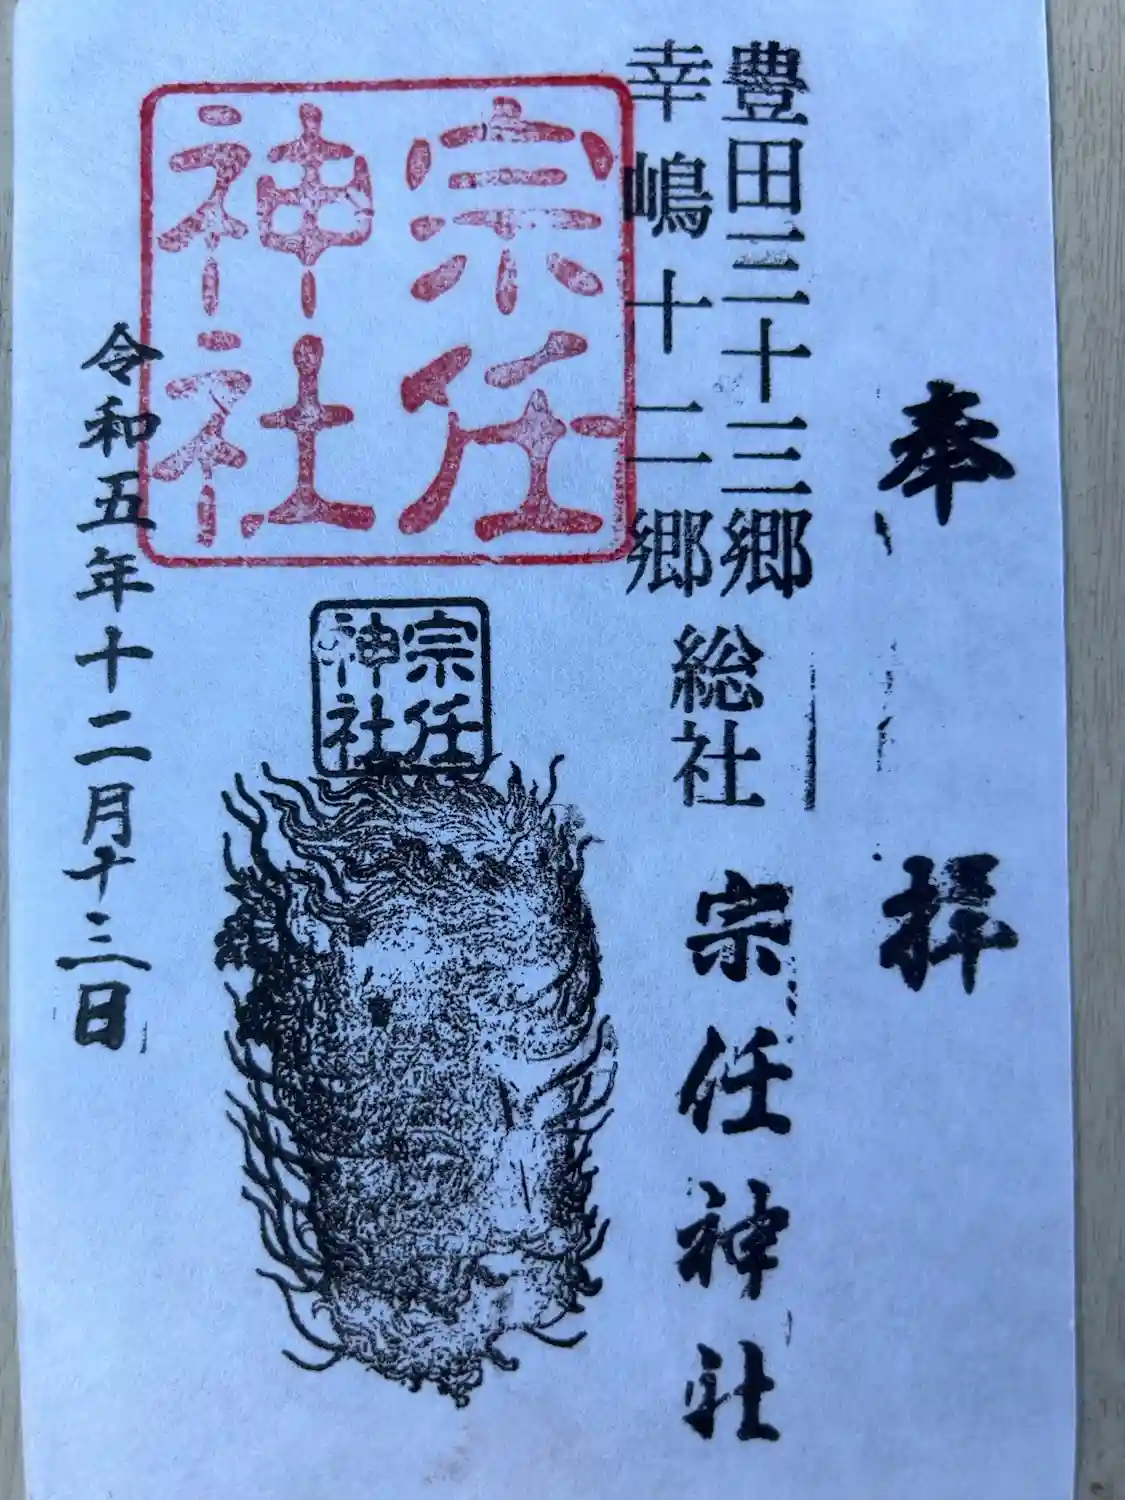 奉拝
豊田三十三郷
幸嶋十二郷
総社 宗任神社
宗任
神社
宗任
神社
令和五年十二月十三日